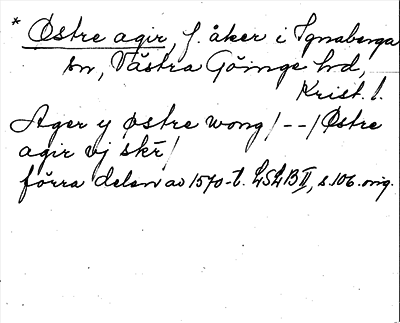 * Østre agir, f. åker i Ignaberga
sn, Västra Göinge hd,
Krist. l.
Ager y østre wong /--/ Østre
agir vj skr̄ /
förra delen av 1570-t. LSLB II, s. 106. orig.